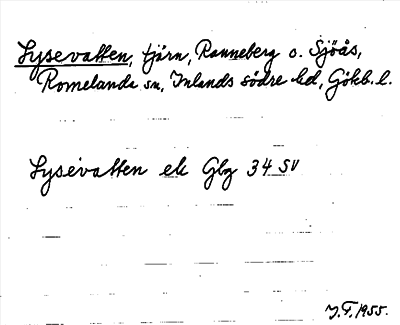 Lysevatten, tjärn, Ranneberg o. Sjöås,
Romelanda sn, Inlands södre hd, Gökb. l.
Lysevatten ek Gbg 34 SV
J.F. 1955.